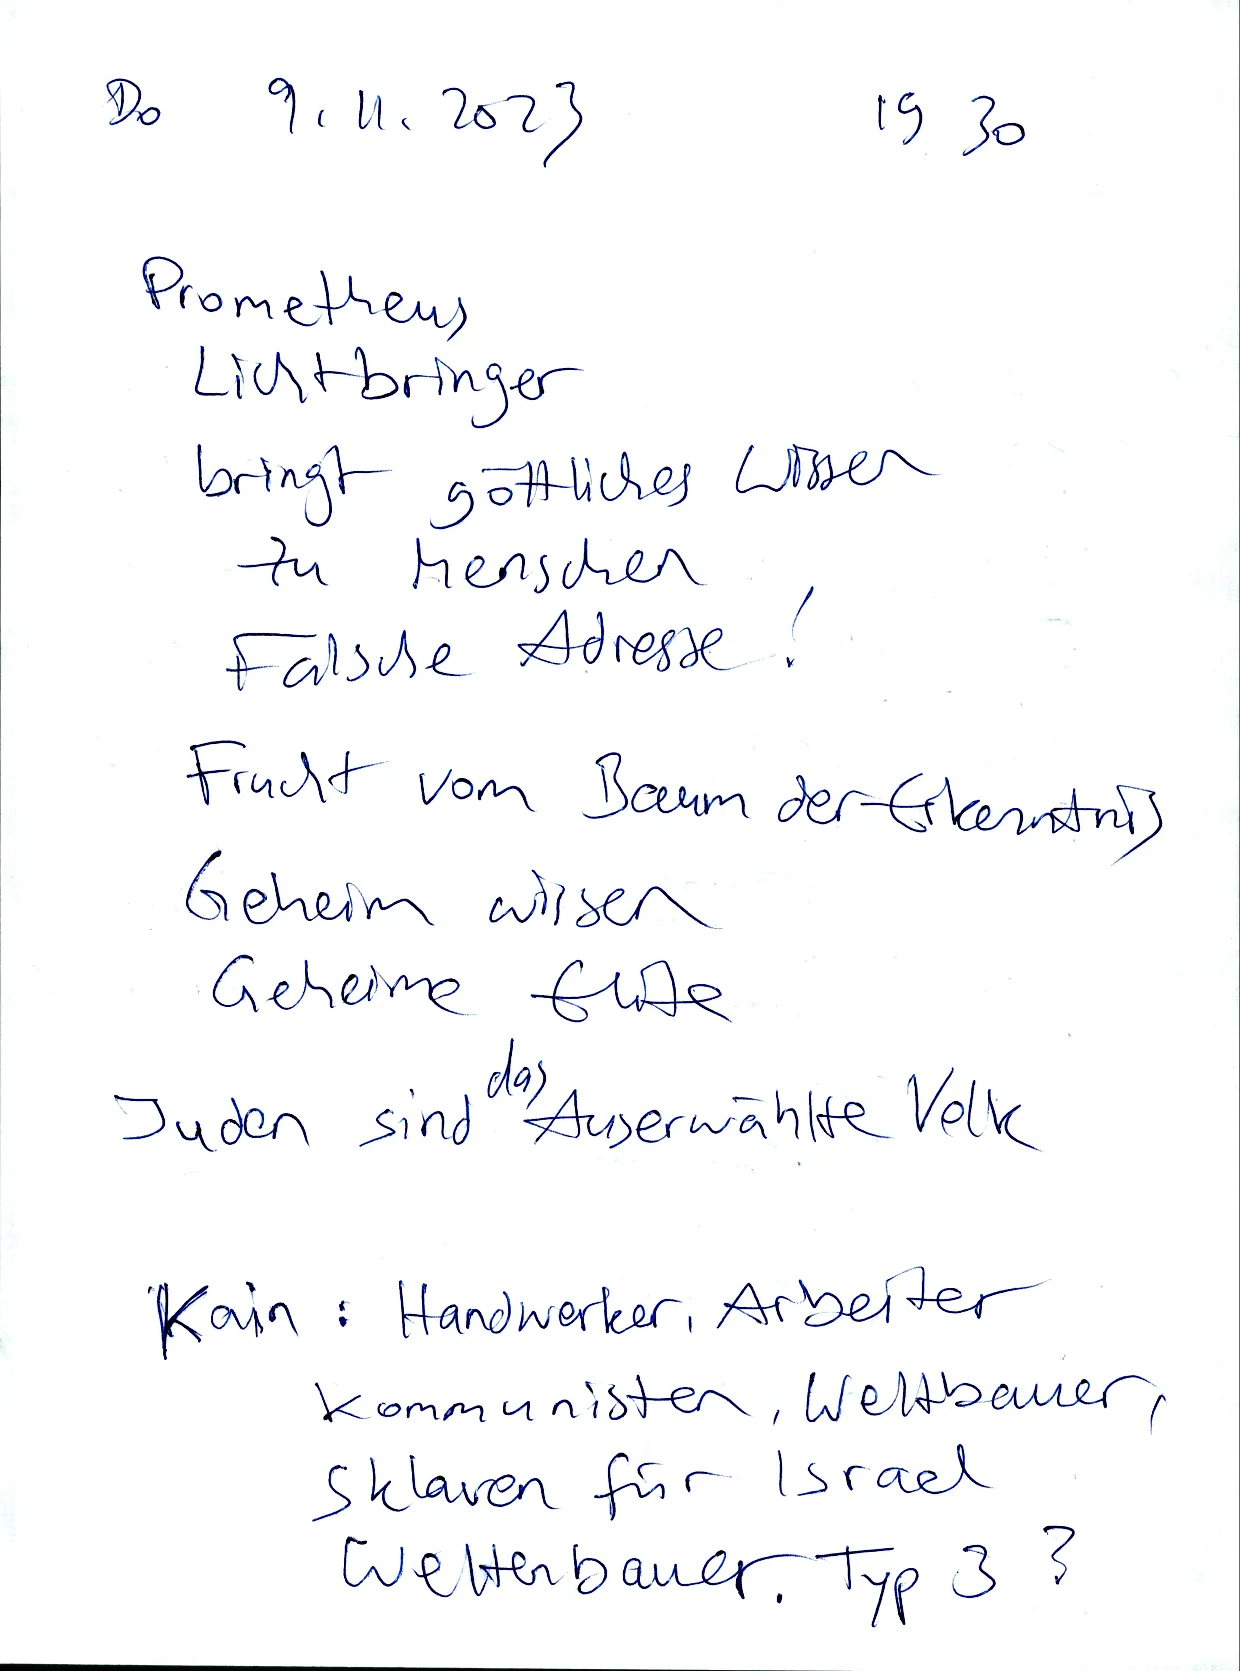 Do 9.11.2023 19 30
Prometheus
Lichtbringer
bringt göttliches Wissen
zu Menschen
Falsche Adresse!
Frucht vom Baum der Erkenntnis
Geheim wissen
Geheime Elite
Juden sind das Auserwählte Volk
Kain: Handwerker, Arbeiter
Kommunisten, Weltbauer,
Sklaven für Israel
Weltenbauer. Typ 3?